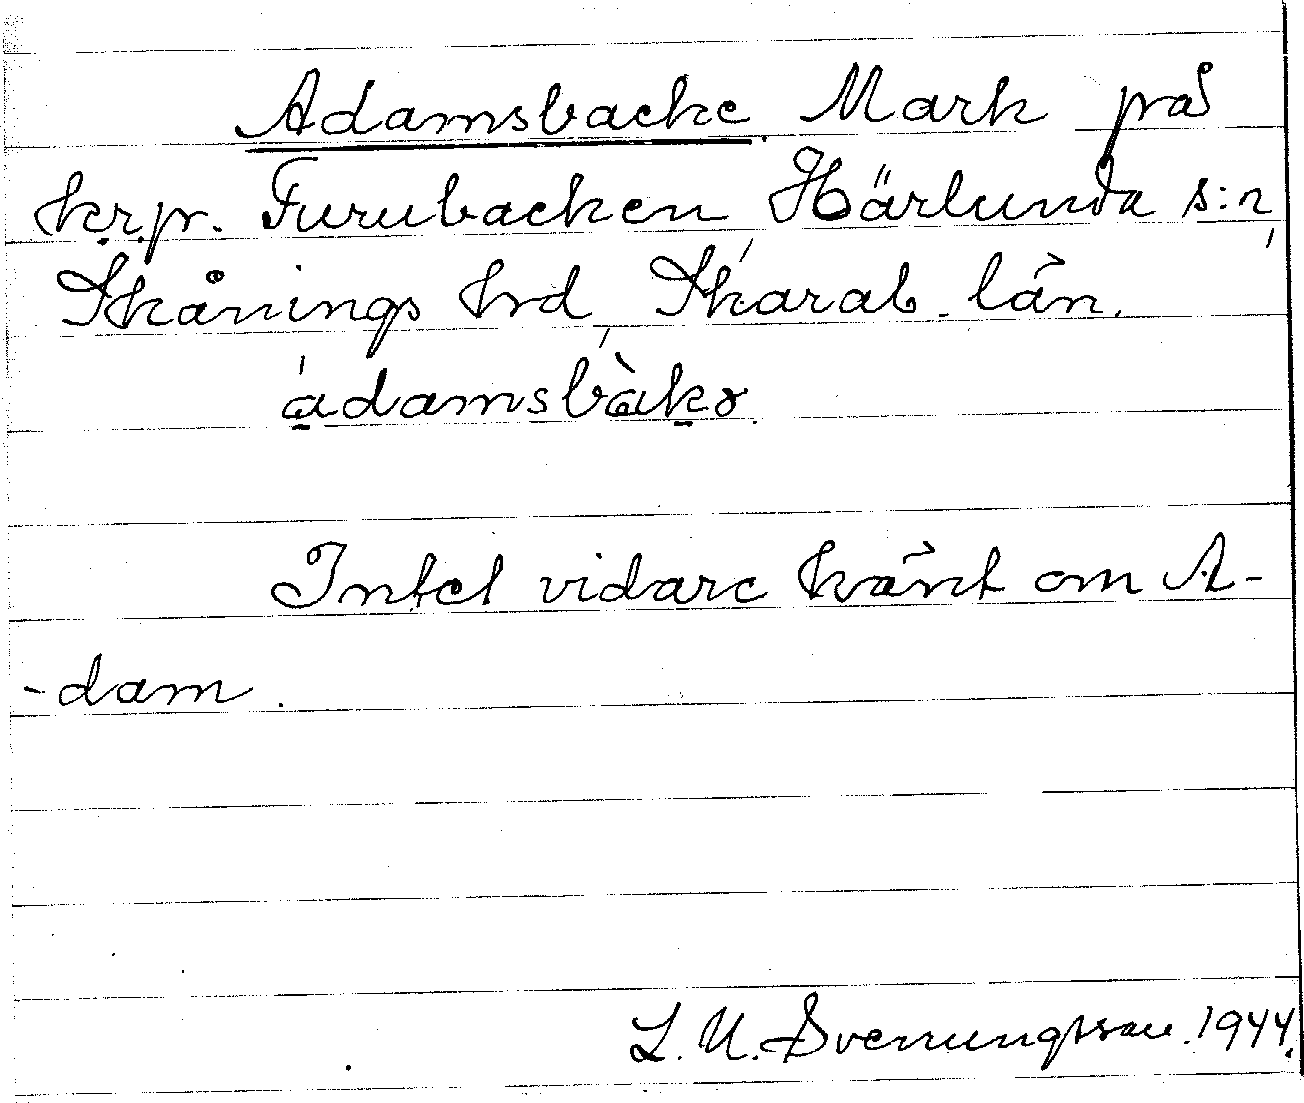 Adamsbacke. Mark på
kr.pr. Furubacken, Härlunda s:n,
Skånings hrd, Skarab. län.
ádamsbàkɘ.
Intet vidare känt om A-
-dam.
L. U. Svenungsson. 1944.